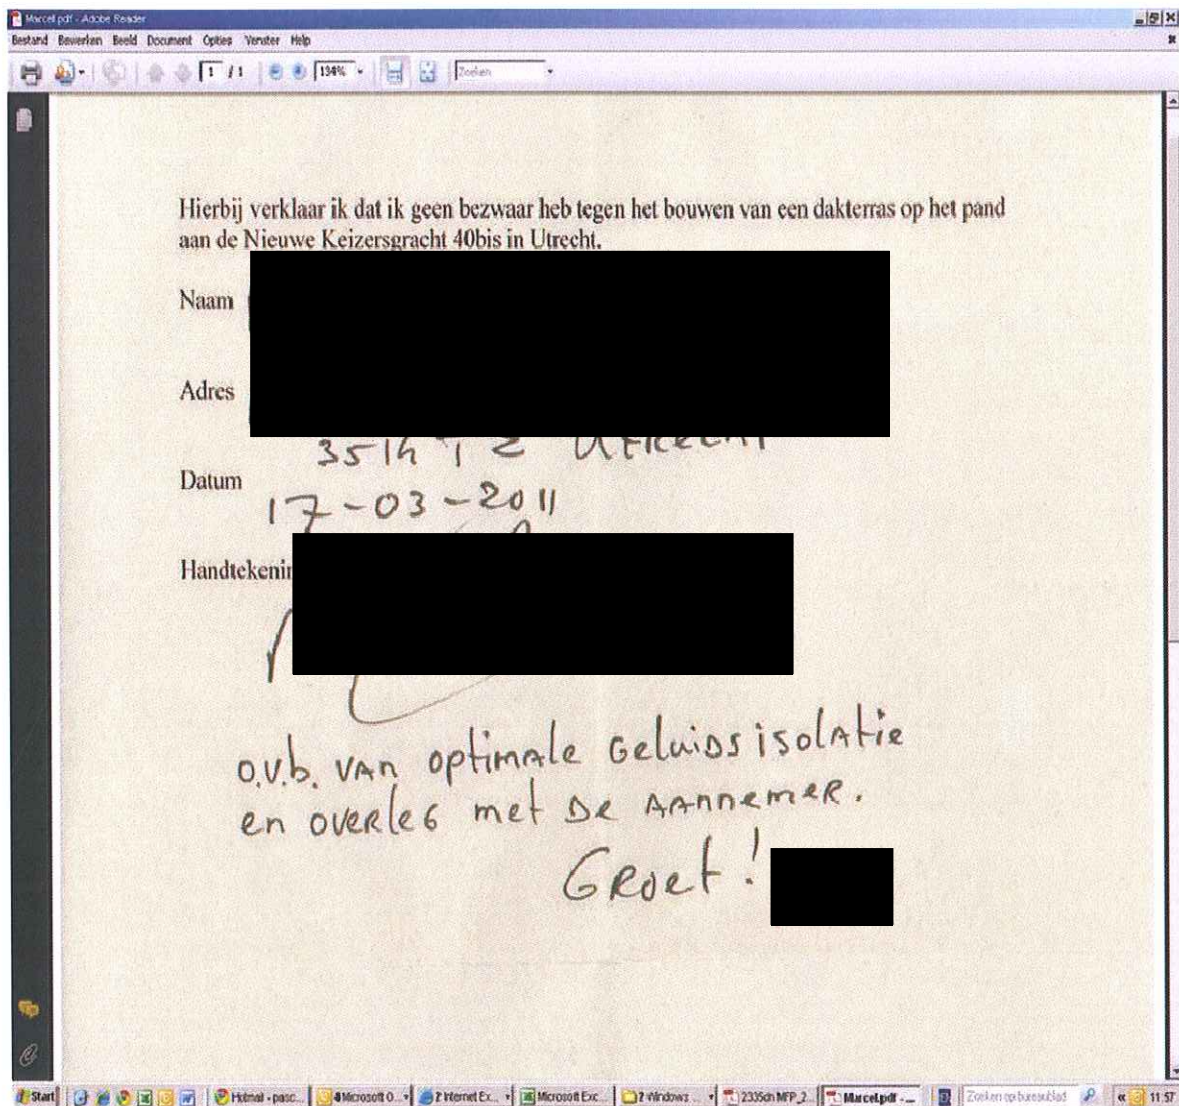 Marcel.pdf - Adobe Reader
Bestand Bewerken Beeld Document Opties Venster Help
1 / 1 194% Zoeken
Hierbij verklaar ik dat ik geen bezwaar heb tegen het bouwen van een dakterras op het pand
aan de Nieuwe Keizersgracht 40bis in Utrecht.
Naam
Adres
UTRECHT
Datum
17-03-2011
Handtekenin
o.v.b. van optimale Geluidsisolatie
en overleg met De Aannemer.
Groet!
Start Hotmail - pasc... 4 Microsoft O... 2 Internet Ex... Microsoft Exc... 2 Windows ... 2335ch MFP_2... Marcel.pdf - ... Zoeken op bureaublad 11:57